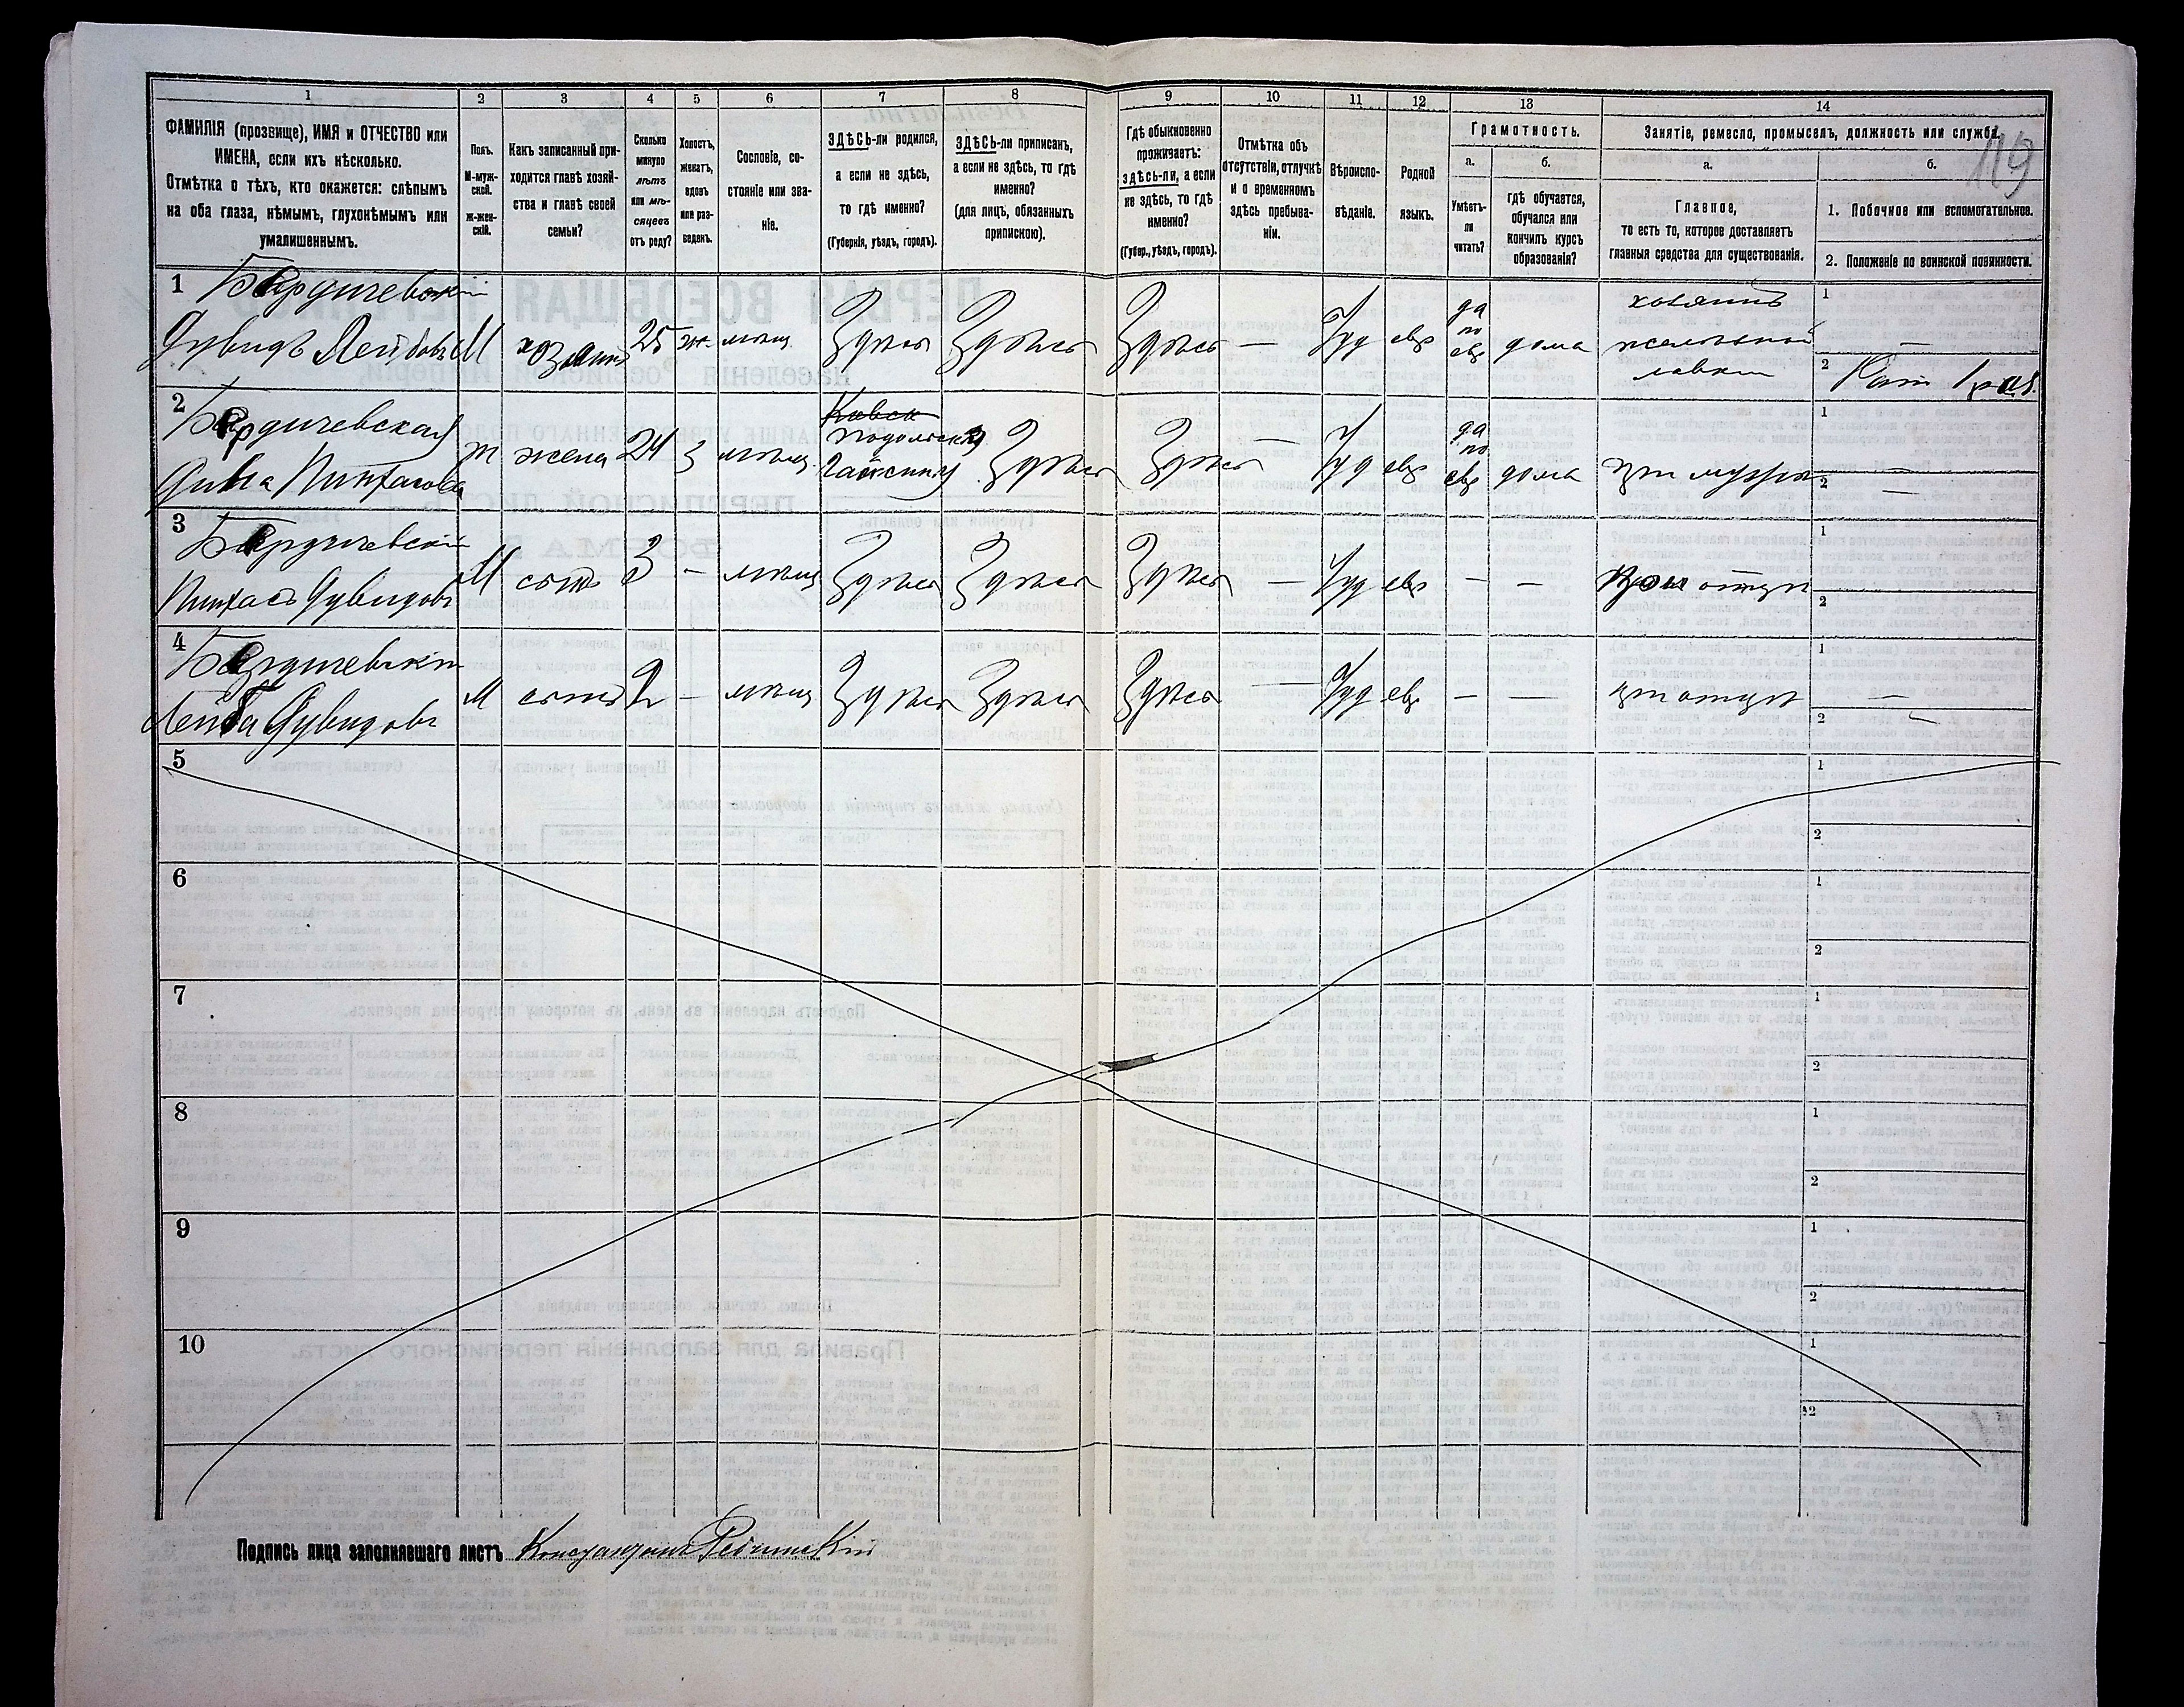 119
1 2 3 4 5 6 7 8 9 10 11 12 13 14
ФАМИЛІЯ (прозвище), ИМЯ и ОТЧЕСТВО или
ИМЕНА, если ихъ нѣсколько.
Отмѣтка о тѣхъ, кто окажется: слѣпымъ
на оба глаза, нѣмымъ, глухонѣмымъ или
умалишеннымъ.
Полъ.
М-муж-
ской.
ж-жен-
скій.
Какъ записанный при-
ходится главѣ хозяй-
ства и главѣ своей
семьи?
Сколько
минуло
лѣтъ
или мѣ-
сяцевъ
отъ роду?
Холостъ,
женатъ,
вдовъ
или раз-
веденъ.
Сословіе, со-
стояніе или зва-
ніе.
ЗДѢСЬ-ли родился,
а если не здѣсь,
то гдѣ именно?
(Губернія, уѣздъ, городъ).
ЗДѢСЬ-ли приписанъ,
а если не здѣсь, то гдѣ
именно?
(для лицъ, обязанныхъ
припискою).
Гдѣ обыкновенно
проживаетъ:
здѣсь-ли, а если
не здѣсь, то гдѣ
именно?
(Губер., уѣздъ, городъ).
Отмѣтка объ
отсутствіи, отлучкѣ
и о временномъ
здѣсь пребыва-
ніи.
Вѣроиспо-
вѣданіе.
Родной
языкъ.
Грамотность.
а.
Умѣетъ-
ли
читать?
б.
гдѣ обучается,
обучался или
кончилъ курсъ
образованія?
Занятіе, ремесло, промыселъ, должность или служба.
а.
Главное,
то есть то, которое доставляетъ
главныя средства для существованія.
б.
1. Побочное или вспомогательное.
2. Положеніе по воинской повинности.
1 Бердичевскій
Дувидъ Лейбовъ М хозяинъ 25 ж. мѣщ. Здѣсь Здѣсь Здѣсь — Іуд евр да по евр дома хозяинъ желѣзной лавки 1 — 2 Рат 1 раз.
2 Бердичевская
Дина Пинхасова ж жена 24 З мѣщ. Киевск Подольская Гайсинъ Здѣсь Здѣсь — Іуд евр да по евр дома при мужѣ 1 — 2 —
3 Бердичевскій
Пинхасъ Дувидовъ М сынъ 3 — мѣщ Здѣсь Здѣсь Здѣсь — Іуд евр — — при отцѣ 1 2
4 Бердичевскій
Лейба Дувидовъ М сынъ 2 — мѣщ Здѣсь Здѣсь Здѣсь — Іуд евр — — при отцѣ 1 — 2 —
5 1 2
6 1 2
7 1 2
8 1 2
9 1 2
10 1 2
Подпись лица заполнявшаго листъ